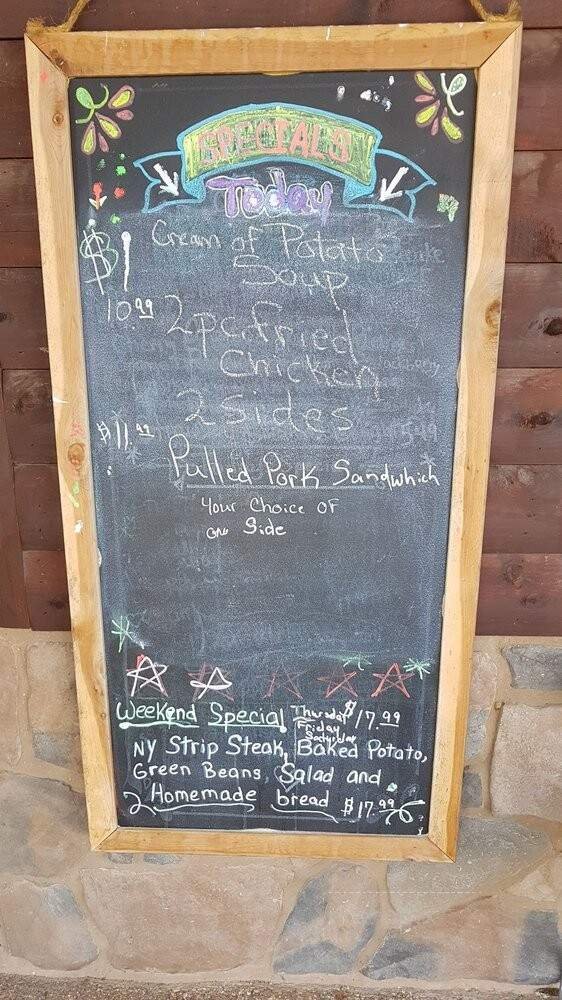 SPECIALS
Today
$1 Cream of Potato
Soup
10.99 2pc. Fried
Chicken
2 Sides
$11.99
Pulled Pork Sandwhich
Your Choice OF
one Side
Weekend Special Thursday $17.99
Friday
Saturday
NY Strip Steak, Baked Potato,
Green Beans, Salad and
Homemade bread $17.99